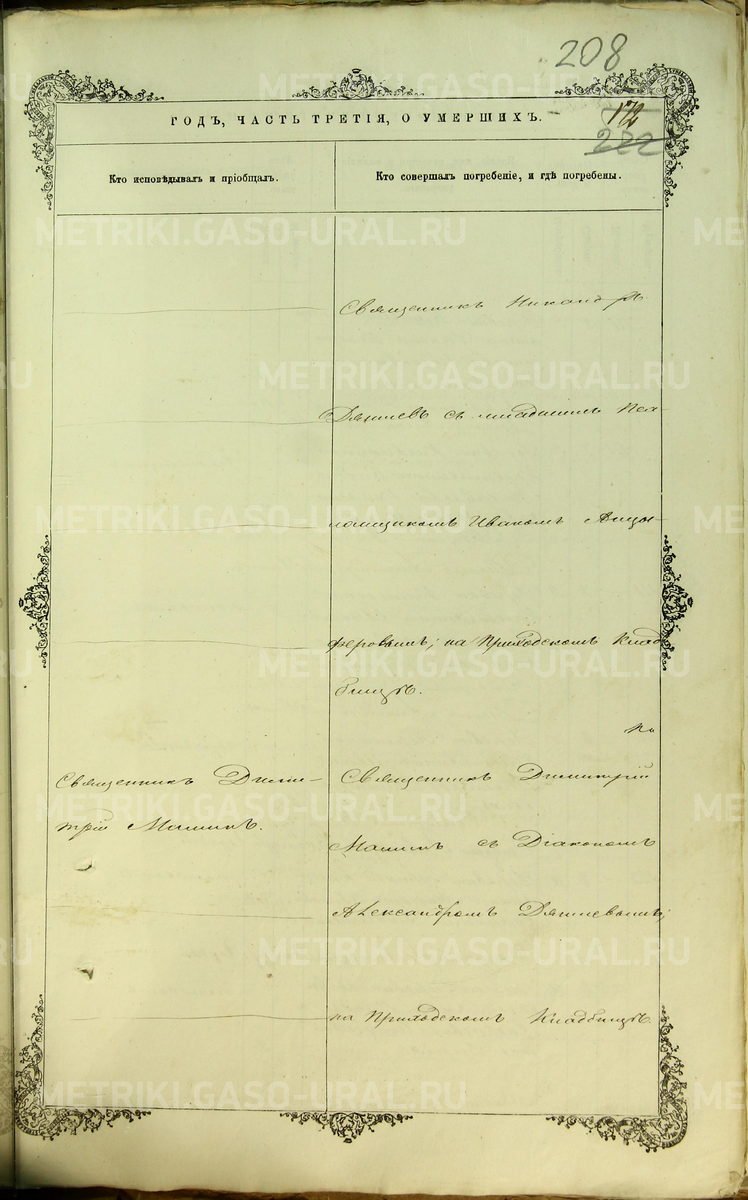 208
172
222
ГОДЪ, ЧАСТЬ ТРЕТІЯ, О УМЕРШИХЪ.
Кто исповѣдывалъ и пріобщалъ.
Кто совершалъ погребеніе, и гдѣ погребены.
Священникъ Никандръ
Дягилевъ съ младшимъ Пса-
ломщикомъ Иваномъ Анцы-
феровымъ; на Приходскомъ Клад
бищѣ.
Священникъ Дими-
трій Малинъ.
Священникъ Димитрій
Малинъ съ Діакономъ
Александромъ Дягилевымъ;
на Приходскомъ Кладбищѣ.
METRIKI.GASO-URAL.RU